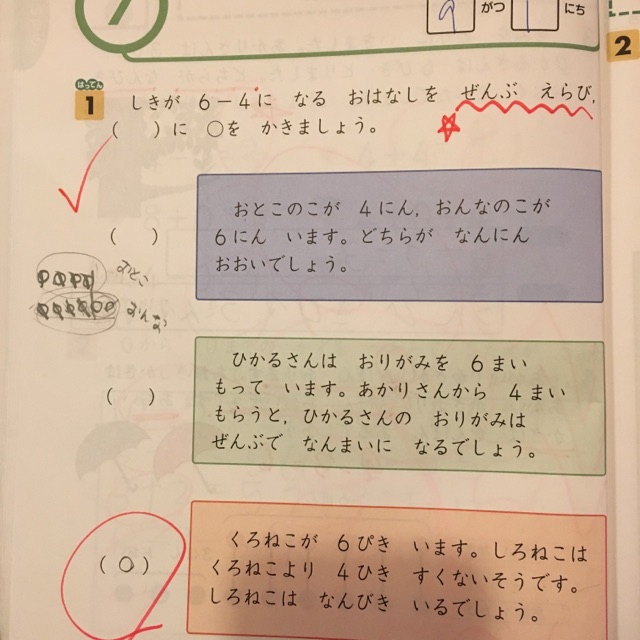 7
9 がつ 1 にち
2
はってん
1 しきが 6−4に なる おはなしを ぜんぶ えらび,
( )に ○を かきましょう。
( )
おとこのこが 4にん, おんなのこが
6にん います。どちらが なんにん
おおいでしょう。
おとこ
おんな
( )
ひかるさんは おりがみを 6まい
もって います。あかりさんから 4まい
もらうと, ひかるさんの おりがみは
ぜんぶで なんまいに なるでしょう。
(○)
くろねこが 6ぴき います。しろねこは
くろねこより 4ひき すくないそうです。
しろねこは なんびき いるでしょう。